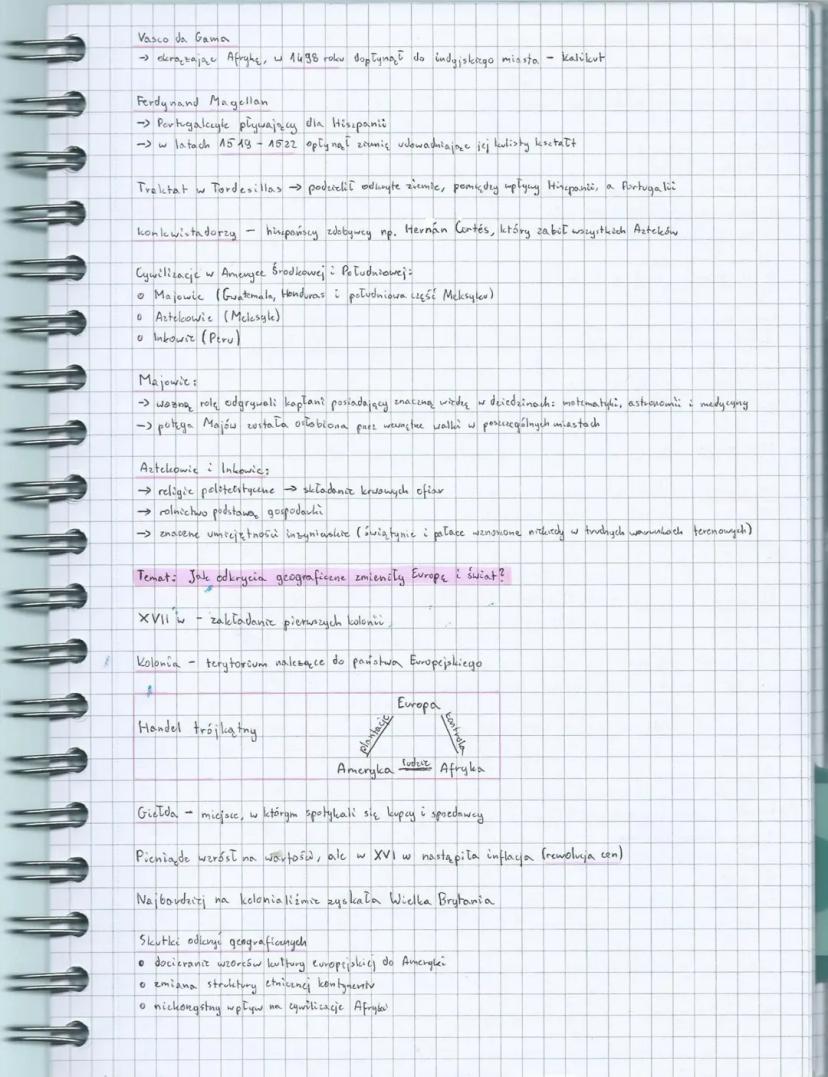 Vasco da Gama
→ okrążając Afrykę, w 1498 roku dopłynął do indyjskiego miasta - Kalikut
Ferdynand Magellan
→ Portugalczyk pływający dla Hiszpanii
→ w latach 1519 - 1522 opłynął ziemię udowadniając jej kulisty kształt
Traktat w Tordesillas → podzielił odkryte ziemie, pomiędzy wpływy Hiszpanii, a Portugalii
konkwistadorzy - hiszpańscy zdobywcy np. Hernán Cortés, który zabił wszystkich Azteków
Cywilizacje w Ameryce Środkowej i Południowej:
o Majowie (Gwatemala, Honduras i południowa część Meksyku)
o Aztekowie (Meksyk)
o Inkowie (Peru)
Majowie:
→ ważną rolę odgrywali kapłani posiadający znaczną wiedzę w dziedzinach: matematyki, astronomii i medycyny
→ potęga Majów została osłabiona przez wewnętrzne walki w poszczególnych miastach
Aztekowie i Inkowie:
→ religie politeistyczne → składanie krwawych ofiar
→ rolnictwo podstawą gospodarki
→ znaczne umiejętności inżynierskie (świątynie i pałace wznoszone niekiedy w trudnych warunkach terenowych)
Temat: Jak odkrycia geograficzne zmieniły Europę i świat?
XVII w - zakładanie pierwszych kolonii
Kolonia - terytorium należące do państwa Europejskiego
Europa
Handel trójkątny
plantacje
kontrola
Ameryka ludzie Afryka
Giełda - miejsce, w którym spotykali się kupcy i sprzedawcy
Pieniądz wzrósł na wartości, ale w XVI w nastąpiła inflacja (rewolucja cen)
Najbardziej na kolonializmie zyskała Wielka Brytania
Skutki odkryć geograficznych
o docieranie wzorców kultury europejskiej do Ameryki
o zmiana struktury etnicznej kontynentu
o niekorzystny wpływ na cywilizacje Afryki